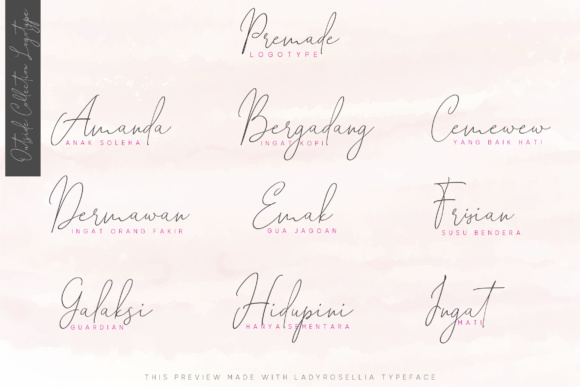 Outside Collection Logotype
Premade
LOGOTYPE
Amanda
ANAK SOLEHA
Bergadang
INGAT KOPI
Cemewew
YANG BAIK HATI
Dermawan
INGAT ORANG FAKIR
Emak
GUA JAGOAN
Frisian
SUSU BENDERA
Galaksi
GUARDIAN
Hidupini
HANYA SEMENTARA
Ingat
MATI
THIS PREVIEW MADE WITH LADYROSELLIA TYPEFACE